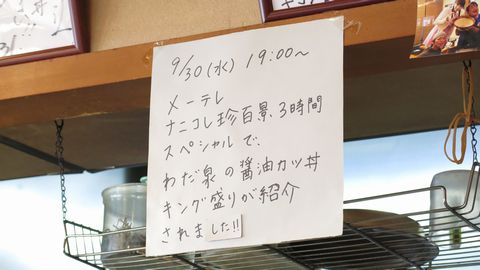 9/30(水) 19:00～
メーテレ
ナニコレ珍百景3時間
スペシャルで、
わだ泉の醤油カツ丼
キング盛りが紹介
されました!!